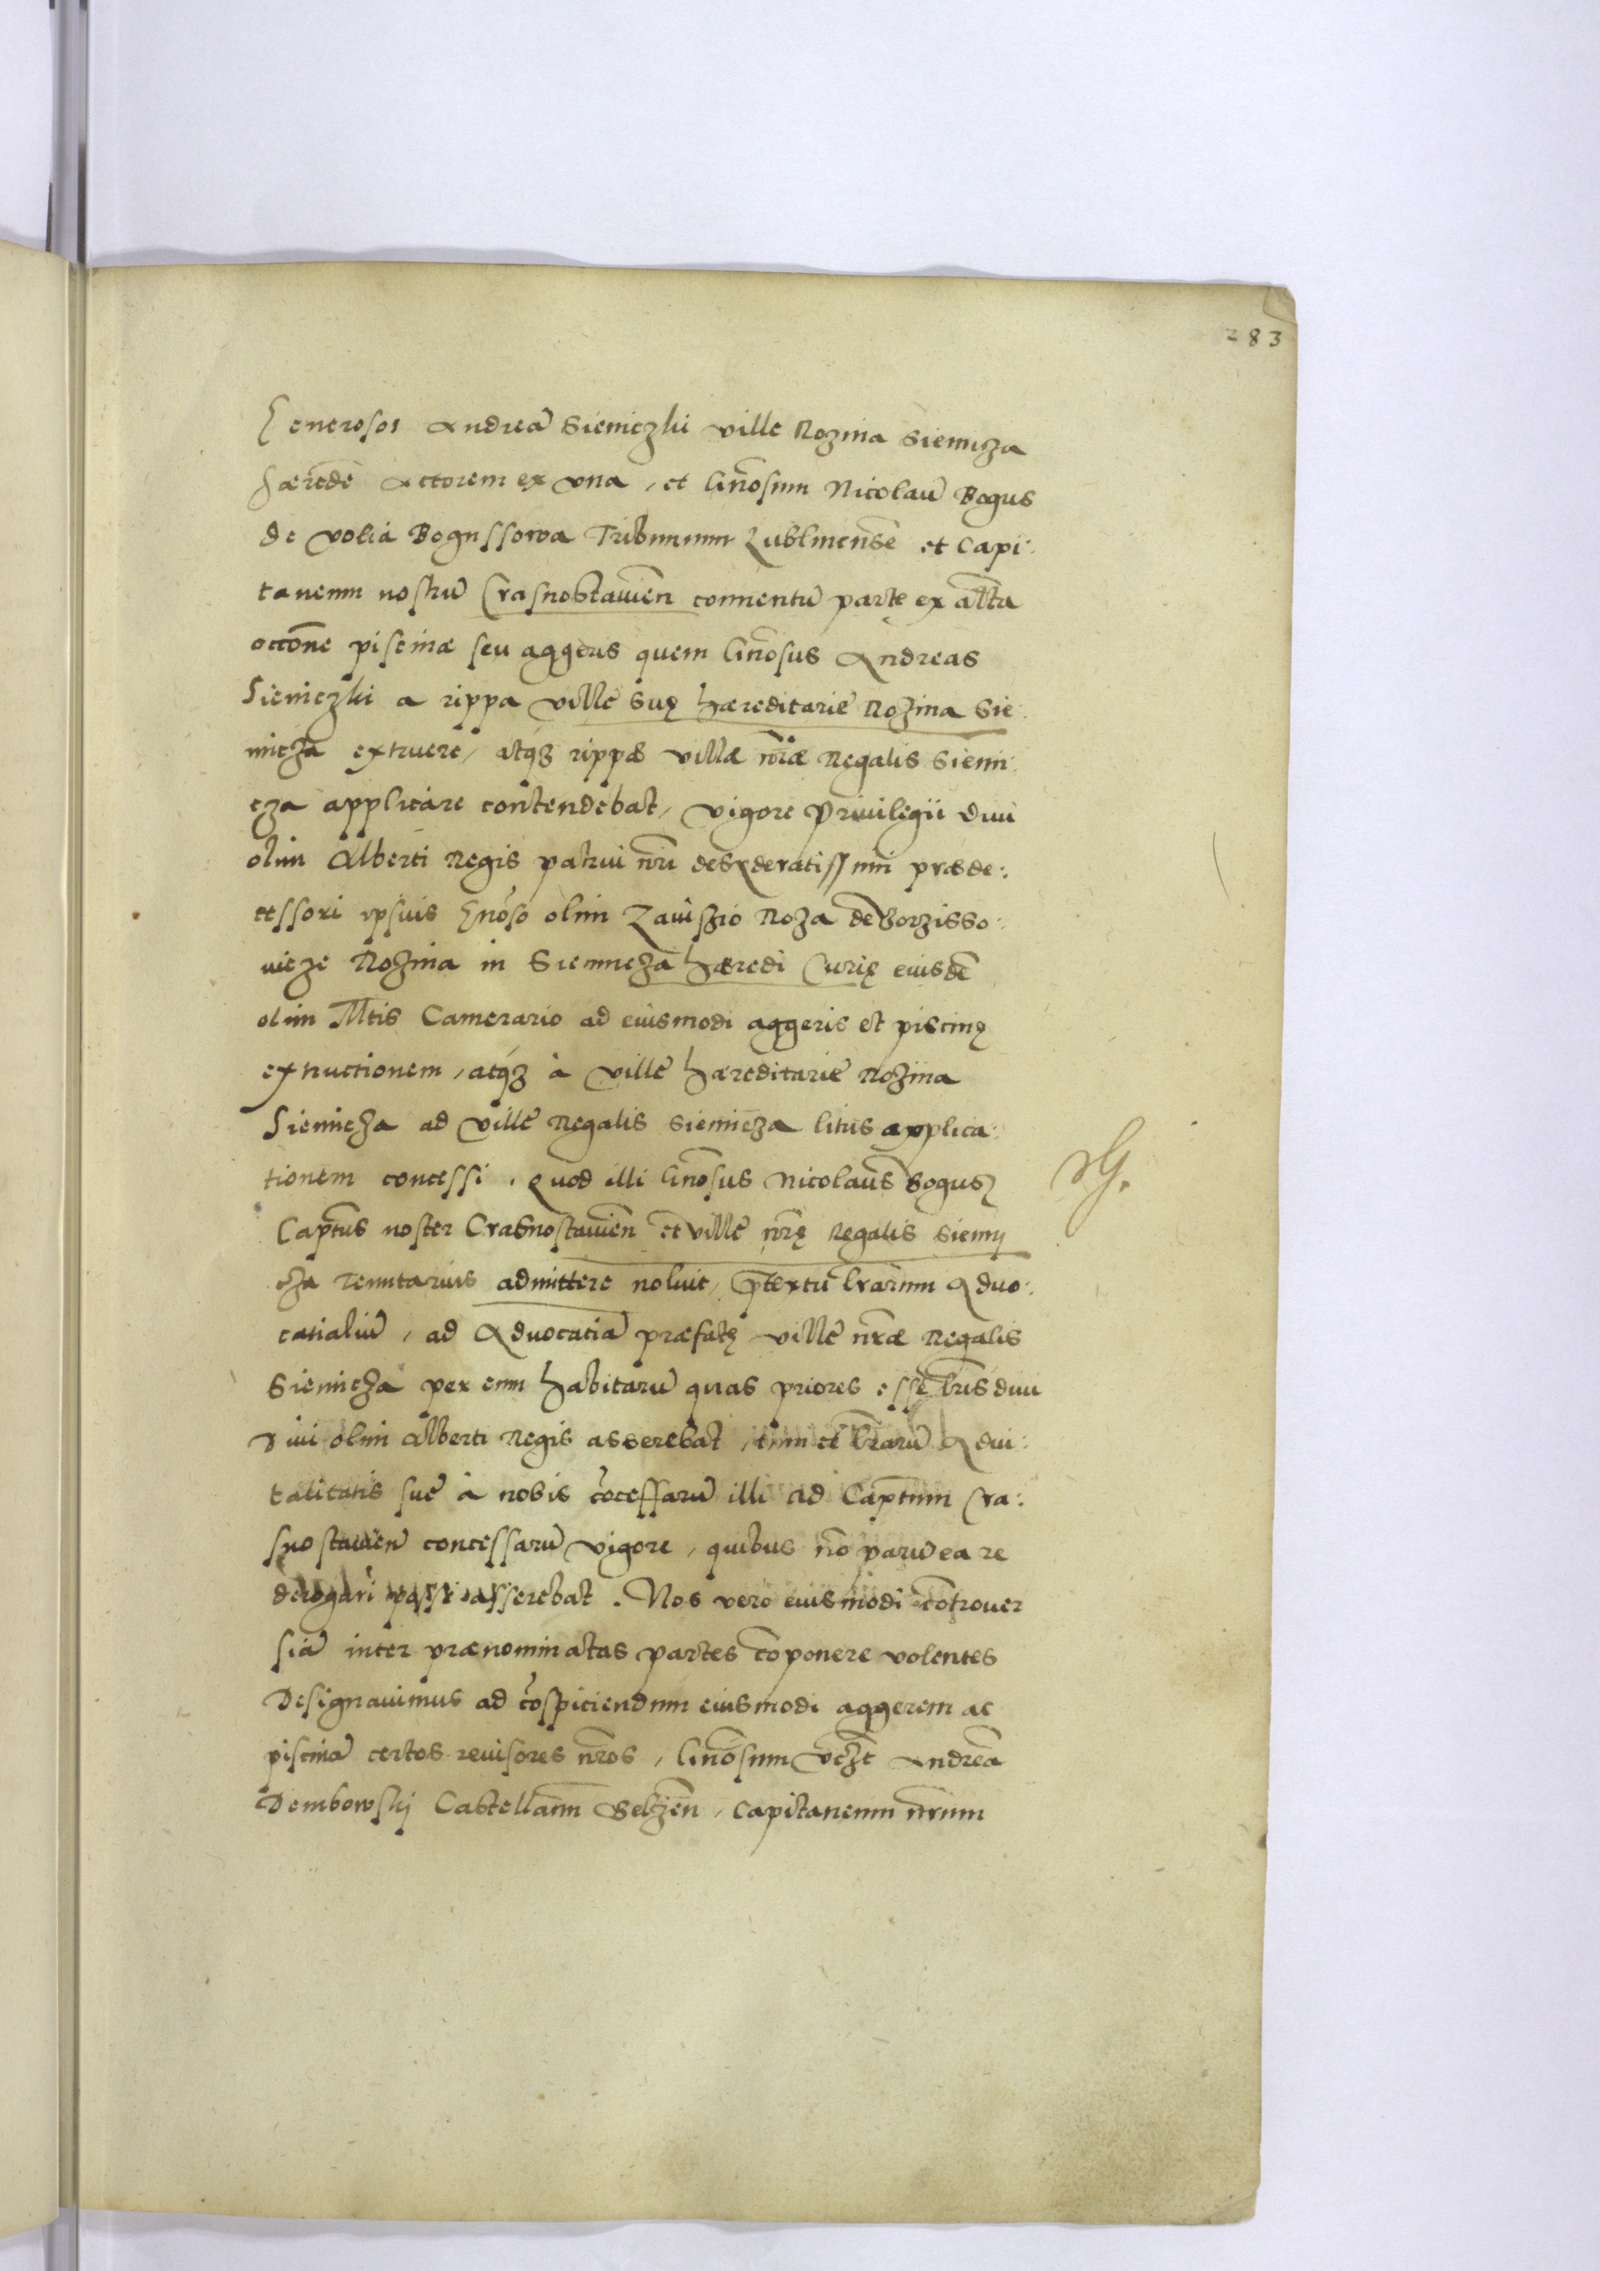 283
Generosos Andreā Sieniczki ville Rozina Siennicza
Hæredē Actorem ex una, et Gn̄osum Nicolaū Bogus
de Volia Bogussowa Tribunum Lublinensē et Capi:
taneum nostrū Crasnostauien̄ conuentū parte ex altā
occōne piscinæ seu aggeris quem Gn̄osus Andreas
Sieniczki a rippa ville suę hæreditarie Rozina Sie:
nicza extruere, atq́ȝ rippæ villæ nr̄æ Regalis Sieni:
cza applicare contendebat, vigore Priuilegii diui
olim Alberti Regis patrui nr̄i desyderatissimi præde:
cessori ipsius Gn̄oso olim Zauiszio Roza de Borzisso:
uicze Rozina in Siennicza hæredi Curię eiusdē
olim Mtis Camerario ad eiusmodi aggeris et piscinę
extructionem, atq́ȝ à ville hæreditarie Rozina
Siennicza ad ville Regalis Siennicza litus applica:
tionem concessi. Quod illi Gn̄osus Nicolaus Bogusz
Capt̄us noster Crasnostauien̄ et ville nr̄ę Regalis Sienny
cza tenutarius admittere noluit, p̄textu lrarum Aduo:
catialiū, ad Aduocatiā præfatę ville nr̄æ Regalis
Siennicza per eum habitarū quas priores esse lr̄is diui
diui olim Alberti Regis asserebat, tum et lr̄arū Adui:
talitatis sue à nobis cōcessarū illi ad Capt̄um Cra:
snostauien̄ concessarū vigore, quibus nō parū ea re
derogari posse asserebat. Nos vero eiusmodi cōtrouer
siā inter prænominatas partes cōponere volentes
Designauimus ad cōspiciendum eiusmodi aggerem ac
piscinā certos reuisores nr̄os, Gn̄osum Andreā
Dembowskj Castellanū Belzen̄, Capitaneum nr̄um